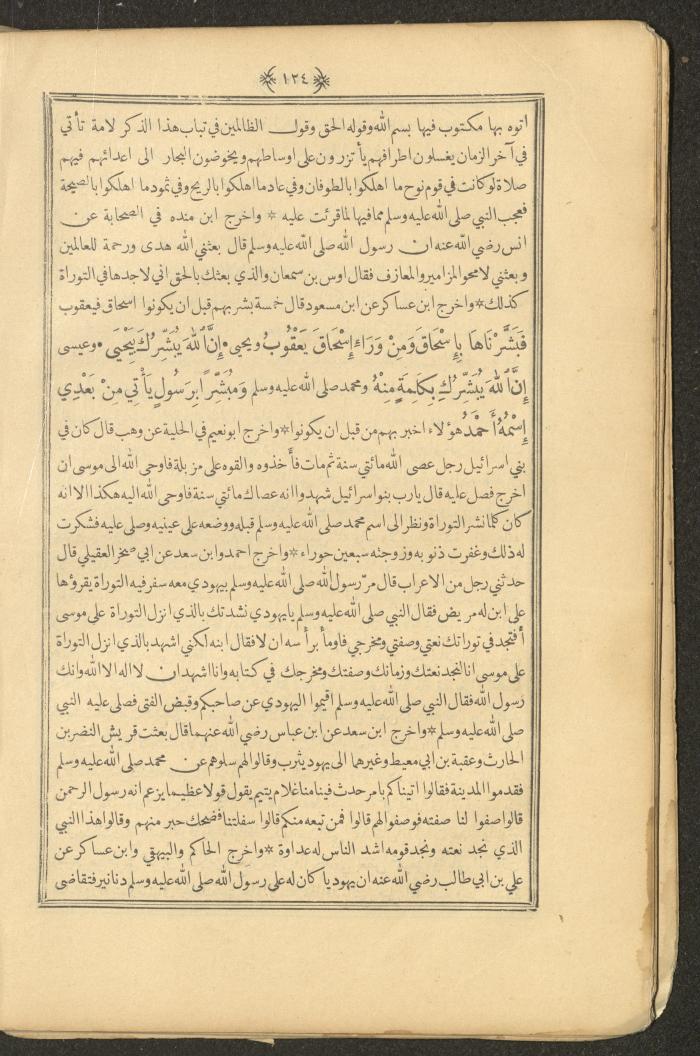 ١٢٤
اتوه بها مكتوب فيها بسم الله وقوله الحق وقول الظالمين في تباب هذا الذكر لامة تأتي
في آخر الزمان يغسلون اطرافهم يأتزرون على اوساطهم ويخوضون البحار الى اعدائهم فيهم
صلاة لو كانت في قوم نوح ما اهلكوا بالطوفان وفي عاد ما اهلكوا بالريح وفي ثمود ما اهلكوا بالصيحة
فعجب النبي صلى الله عليه وسلم مما فيها لما قرئت عليه * واخرج ابن منده في الصحابة عن
انس رضي الله عنه ان رسول الله صلى الله عليه وسلم قال بعثني الله هدى ورحمة للعالمين
وبعثني لامحو المزامير والمعازف فقال اوس بن سمعان والذي بعثك بالحق اني لاجدها في التوراة
كذلك * واخرج ابن عساكر عن ابن مسعود قال خمسة بشر بهم قبل ان يكونوا اسحاق فيعقوب
فَبَشَّرْنَاهَا بِإِسْحَاقَ وَمِنْ وَرَاءِ إِسْحَاقَ يَعْقُوبُ ويحيى * إِنَّ اللهَ يُبَشِّرُكَ بِيَحْيَى * وعيسى
إِنَّ اللهَ يُبَشِّرُكِ بِكَلِمَةٍ مِنْهُ ومحمد صلى الله عليه وسلم وَمُبَشِّرًا بِرَسُولٍ يَأْتِي مِنْ بَعْدِي
إِسْمُهُ أَحْمَدُ هؤلاء اخبر بهم من قبل ان يكونوا * واخرج ابو نعيم في الحلية عن وهب قال كان في
بني اسرائيل رجل عصى الله مائتي سنة ثم مات فأخذوه والقوه على مزبلة فاوحى الله الى موسى ان
اخرج فصل عليه قال يارب بنو اسرائيل شهدوا انه عصاك مائتي سنة فاوحى الله اليه هكذا الا انه
كان كلما نشر التوراة ونظر الى اسم محمد صلى الله عليه وسلم قبله ووضعه على عينيه وصلى عليه فشكرت
له ذلك وغفرت ذنوبه وزوجته سبعين حوراء * واخرج احمد وابن سعد عن ابي صخر العقيلي قال
حدثني رجل من الاعراب قال مرّ رسول الله صلى الله عليه وسلم بيهودي معه سفر فيه التوراة يقرؤها
على ابن له مريض فقال النبي صلى الله عليه وسلم يا يهودي نشدتك بالذي انزل التوراة على موسى
أفتجد في توراتك نعتي وصفتي ومخرجي فاومأ برأسه ان لا فقال ابنه لكني اشهد بالذي انزل التوراة
على موسى انا لنجد نعتك وزمانك وصفتك ومخرجك في كتابه وانا اشهد ان لا اله الا الله وانك
رسول الله فقال النبي صلى الله عليه وسلم اقيموا اليهودي عن صاحبكم وقبض الفتى فصلى عليه النبي
صلى الله عليه وسلم * واخرج ابن سعد عن ابن عباس رضي الله عنهما قال بعثت قريش النضر بن
الحارث وعقبة بن ابي معيط وغيرهما الى يهود يثرب وقالوا لهم سلوهم عن محمد صلى الله عليه وسلم
فقدموا المدينة فقالوا اتيناكم بامر حدث فينا منا غلام يتيم يقول قولا عظيما يزعم انه رسول الرحمن
قالوا صفوا لنا صفته فوصفوا لهم قالوا فمن تبعه منكم قالوا سفلتنا فضحك حبر منهم وقالوا هذا النبي
الذي نجد نعته ونجد قومه اشد الناس له عداوة * واخرج الحاكم والبيهقي وابن عساكر عن
علي بن ابي طالب رضي الله عنه ان يهوديا كان له على رسول الله صلى الله عليه وسلم دنانير فتقاضى